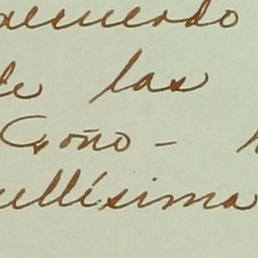 acuerdo
de las
Goño –
ellísima